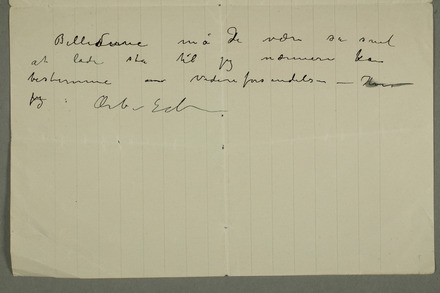 Billederne må De være så snil
at lade stå til jeg nærmere kan
bestemme om videre forsendelse —
jeg